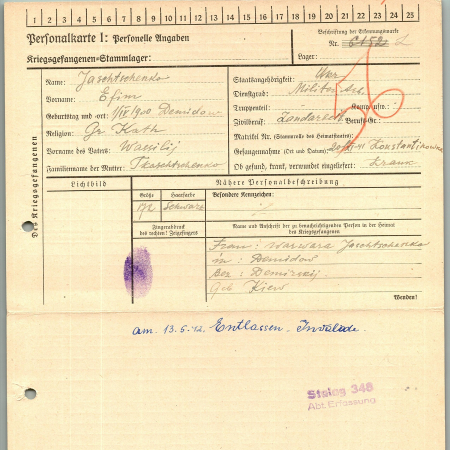 1 2 3 4 5 6 7 8 9 10 11 12 13 14 15 16 17 18 19 20 21 22 23 24 25
Personalkarte I: Personelle Angaben
Kriegsgefangenen-Stammlager:
Beschriftung der Erkennungsmarke
Nr.
Lager:
Des Kriegsgefangenen
Name: Jaschtschenko
Vorname: Efim
Geburtstag und -ort: 1900 Demidow
Religion: Gr. Kath
Vorname des Vaters: Wassilij
Familienname der Mutter: Tkaschtschenko
Staatsangehörigkeit: Ukr
Dienstgrad: Militär
Truppenteil: Kompanie usw.:
Zivilberuf: Berufs-Gr.:
Matrikel Nr. (Stammrolle des Heimatstaates):
Gefangennahme (Ort und Datum): 41 Konstantinowka
Ob gesund, krank, verwundet eingeliefert: krank
Lichtbild
Nähere Personalbeschreibung
Größe
Haarfarbe
Besondere Kennzeichen:
172
Schwarz
Fingerabdruck
des rechten! Zeigefingers
Name und Anschrift der zu benachrichtigenden Person in der Heimat
des Kriegsgefangenen
Frau: Warwara Jaschtschenko
in: Demidow
Bez: Demirskij
Geb Kiew
Wenden!
am 13.5.42 Entlassen - Invalide.
Stalag 348
Abt. Erfassung